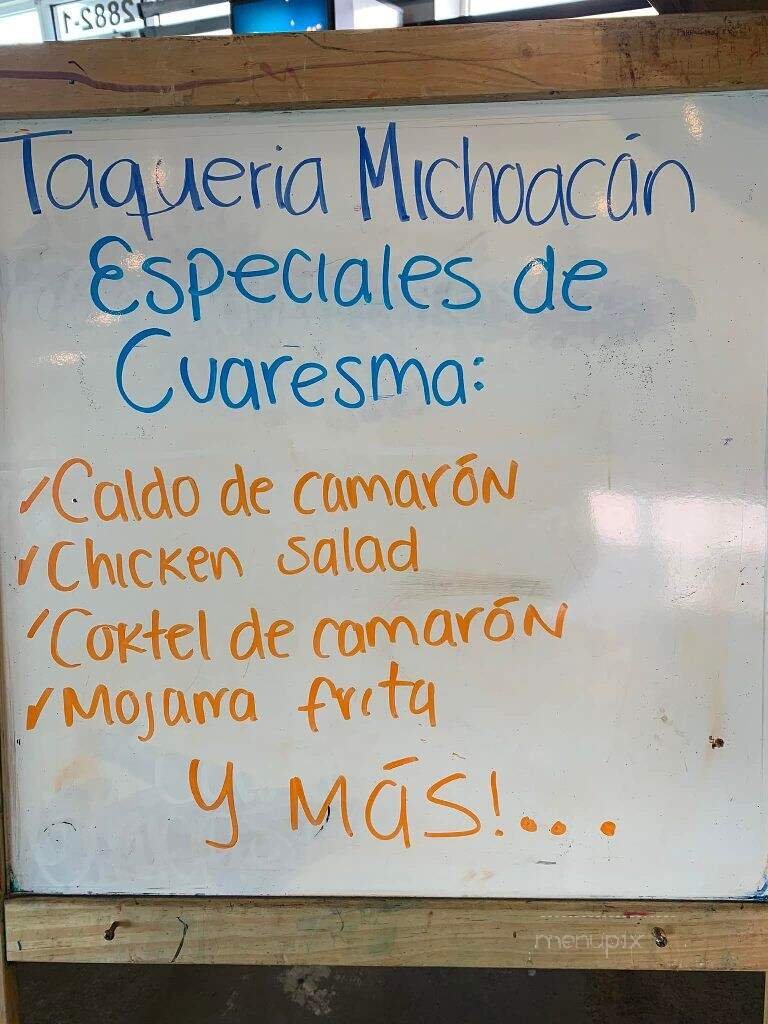 2882-1
Taqueria Michoacán
Especiales de
Cuaresma:
✓Caldo de camarón
✓Chicken salad
✓Coktel de camarón
✓Mojarra frita
y más!...
menupix